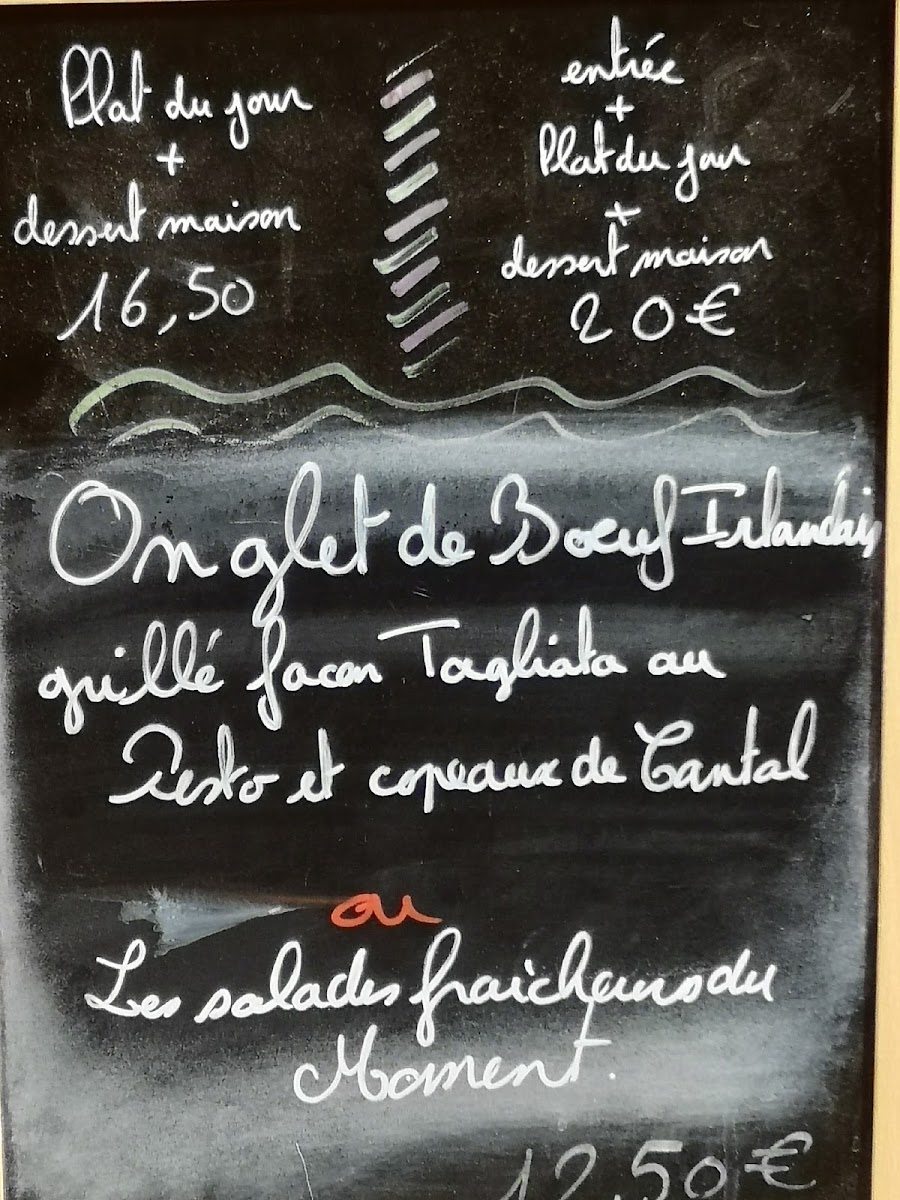 Plat du jour
+
dessert maison
16,50
entrée
+
Plat du jour
+
dessert maison
20€
Onglet de Boeuf Irlandais
grillé façon Tagliata au
Pesto et copeaux de Cantal
ou
Les salades fraicheurs du
Moment.
12,50€